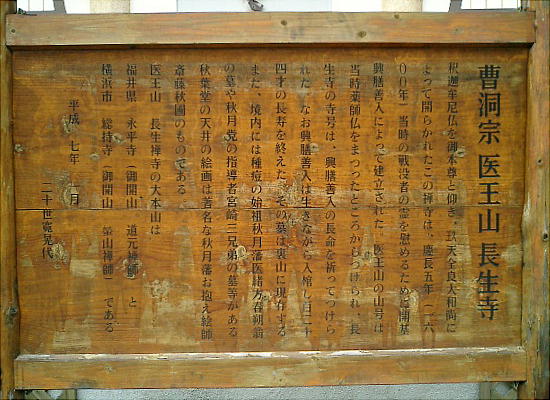 曹洞宗 医王山 長生寺
釈迦牟尼仏を御本尊と仰ぎ、玖天全良大和尚に
よって開らかれたこの禅寺は、慶長五年(一六
〇〇年)当時の戦没者の霊を慰めるために開基
興膳善入によって建立された。医王山の山号は
当時薬師仏をまつったところからつけられ、長
生寺の寺号は、興膳善入の長命を祈ってつけら
れた。なお興膳善入は生きながら入棺し百二十
四才の長寿を終えた。その墓は裏山に現存する
また、境内には種痘の始祖秋月藩医緒方春朔翁
の墓や秋月党の指導者宮崎三兄弟の墓等がある
秋葉堂の天井の絵画は著名な秋月藩お抱え絵師
斎藤秋圃のものである
医王山 長生禅寺の大本山は
福井県 永平寺(御開山 道元禅師)と
横浜市 総持寺(御開山 瑩山禅師)である
平成 七年 一月
二十世寛晃代